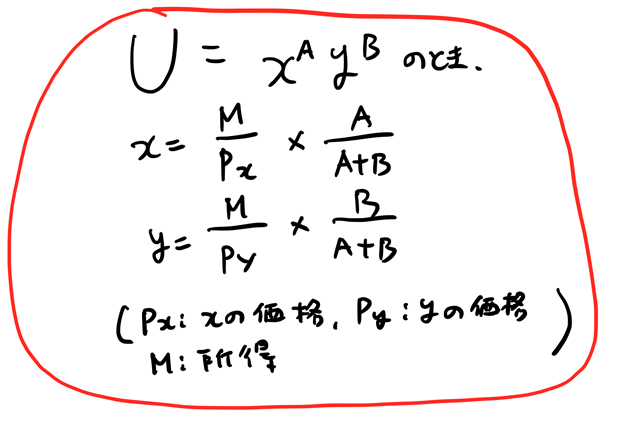 U = x^A y^B のとき、
x = M/Px × A/A+B
y = M/Py × B/A+B
(Px: xの価格、Py: yの価格
M: 所得)